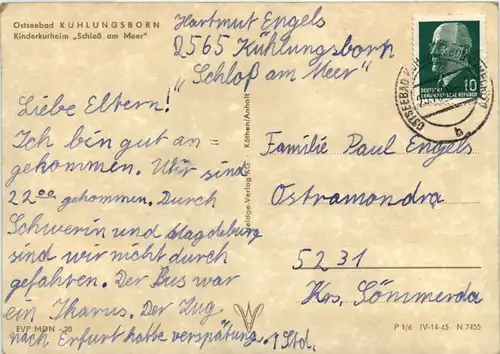 Ostseebad KÜHLUNGSBORN
Kinderkurheim „Schloß am Meer"
Hartmut Engels
2565 Kühlungsborn
„Schloß am Meer"
Liebe Eltern!
Ich bin gut an=
gekommen. Wir sind
22⁰⁰ gekommen. Durch
Schwerin und Magdeburg
sind wir nicht durch
gefahren. Der Bus war
ein Ikarus. Der Zug
nach Erfurt hatte verspätung. 1 Std.
EVP MDN -20
Verlag KG Köthen/Anhalt
DEUTSCHE
DEMOKRATISCHE REPUBLIK
10
OSTSEEBAD
b
Familie Paul Engels
Ostramondra
5231
Krs. Sömmerda
P 1/6 IV-14-45 N 7455